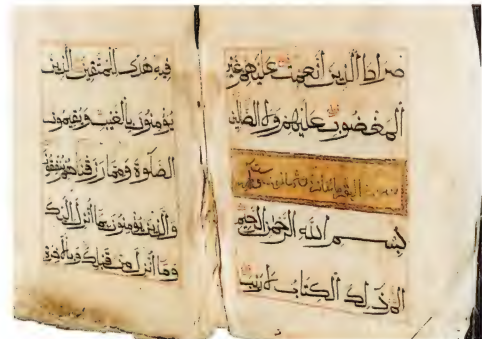 صراط الذين أنعمت عليهم غير
المغضوب عليهم ولا الضالين
سورة البقرة مائتان وثمانون وست آيات
بسم الله الرحمن الرحيم
الم ذلك الكتاب لا ريب
فيه هدى للمتقين الذين
يؤمنون بالغيب ويقيمون
الصلوة ومما رزقناهم ينفقون
والذين يؤمنون بما أنزل إليك
وما أنزل من قبلك وبالآخرة